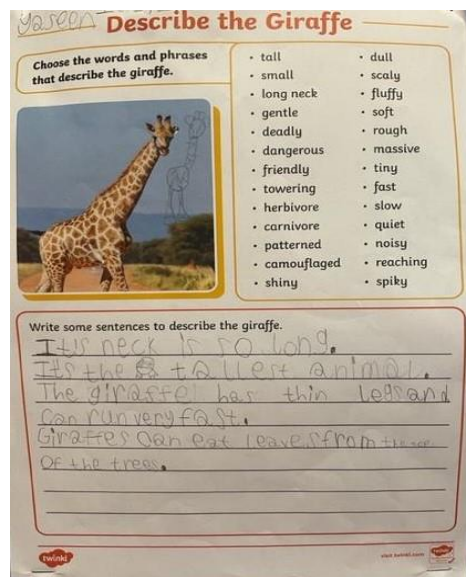 yaseen
Describe the Giraffe
Choose the words and phrases
that describe the giraffe.
• tall
• small
• long neck
• gentle
• deadly
• dangerous
• friendly
• towering
• herbivore
• carnivore
• patterned
• camouflaged
• shiny
• dull
• scaly
• fluffy
• soft
• rough
• massive
• tiny
• fast
• slow
• quiet
• noisy
• reaching
• spiky
Write some sentences to describe the giraffe.
It's neck is so long.
It's the tallest animal.
The giraffe has thin legs and
can run very fast.
Giraffes can eat leaves from the
of the trees.
twinkl
visit twinkl.com
twinkl